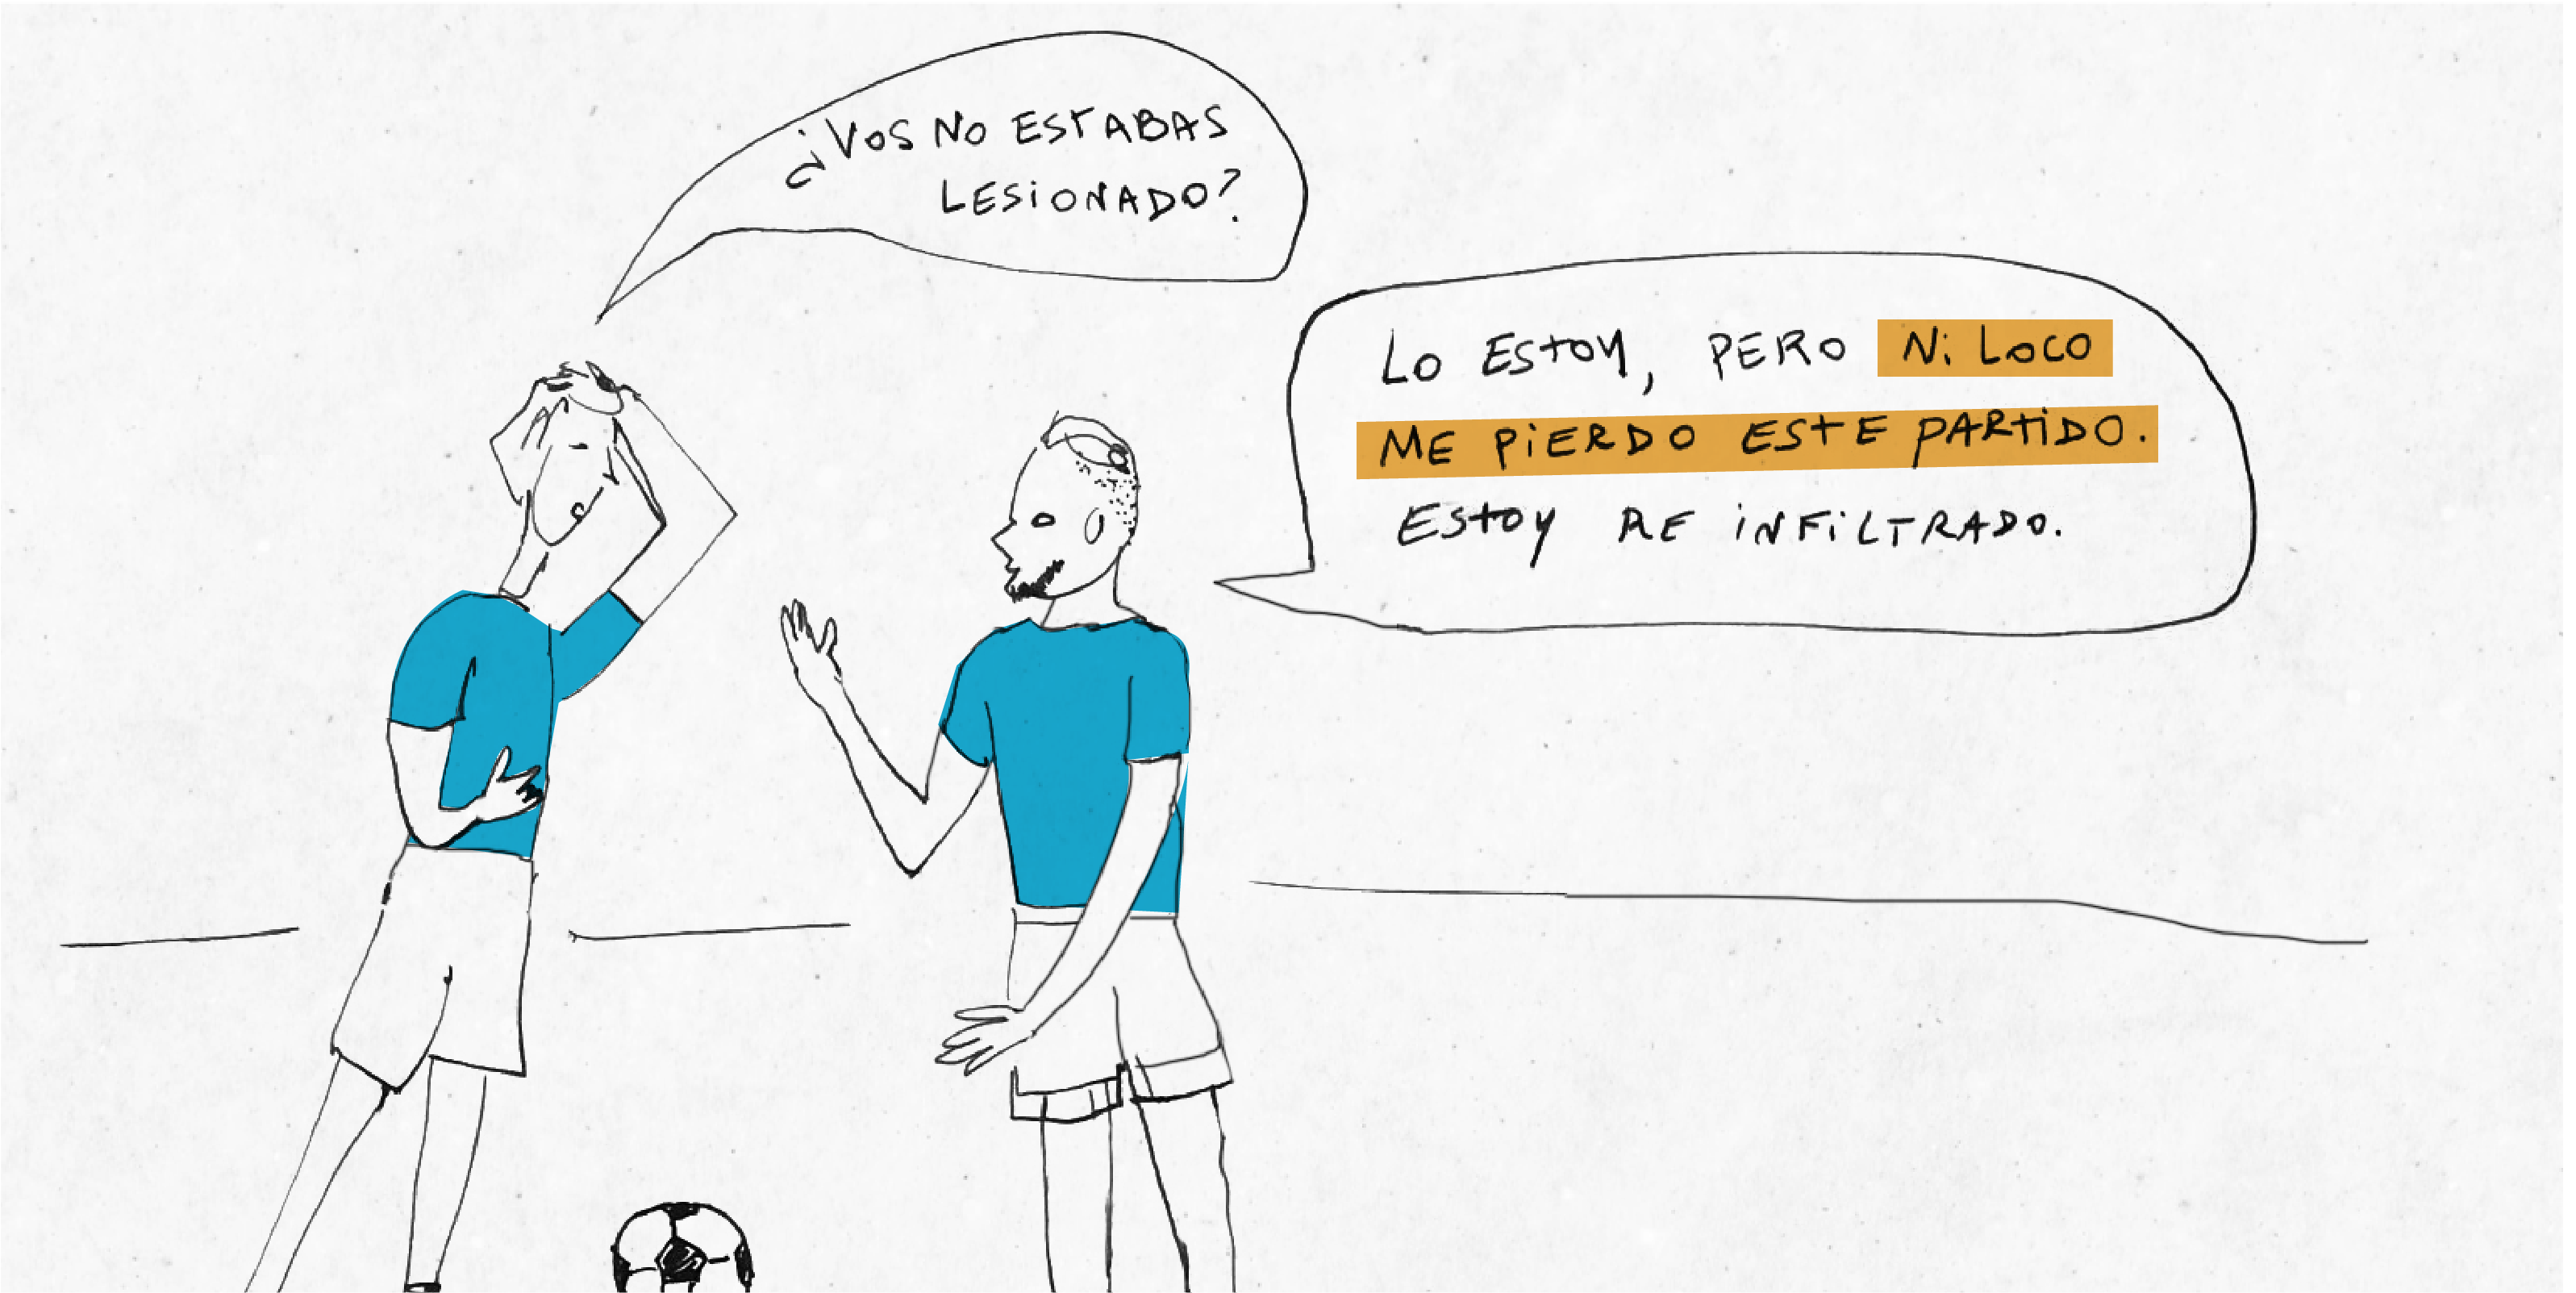 ¿VOS NO ESTABAS
LESIONADO?
LO ESTOY, PERO NI LOCO
ME PIERDO ESTE PARTIDO.
ESTOY RE INFILTRADO.